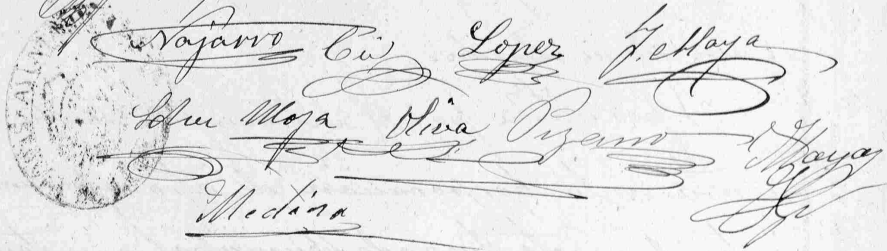 Najarro Cú Lopez J. Maya
Moya Oliva Pizarro
Maya
Medina